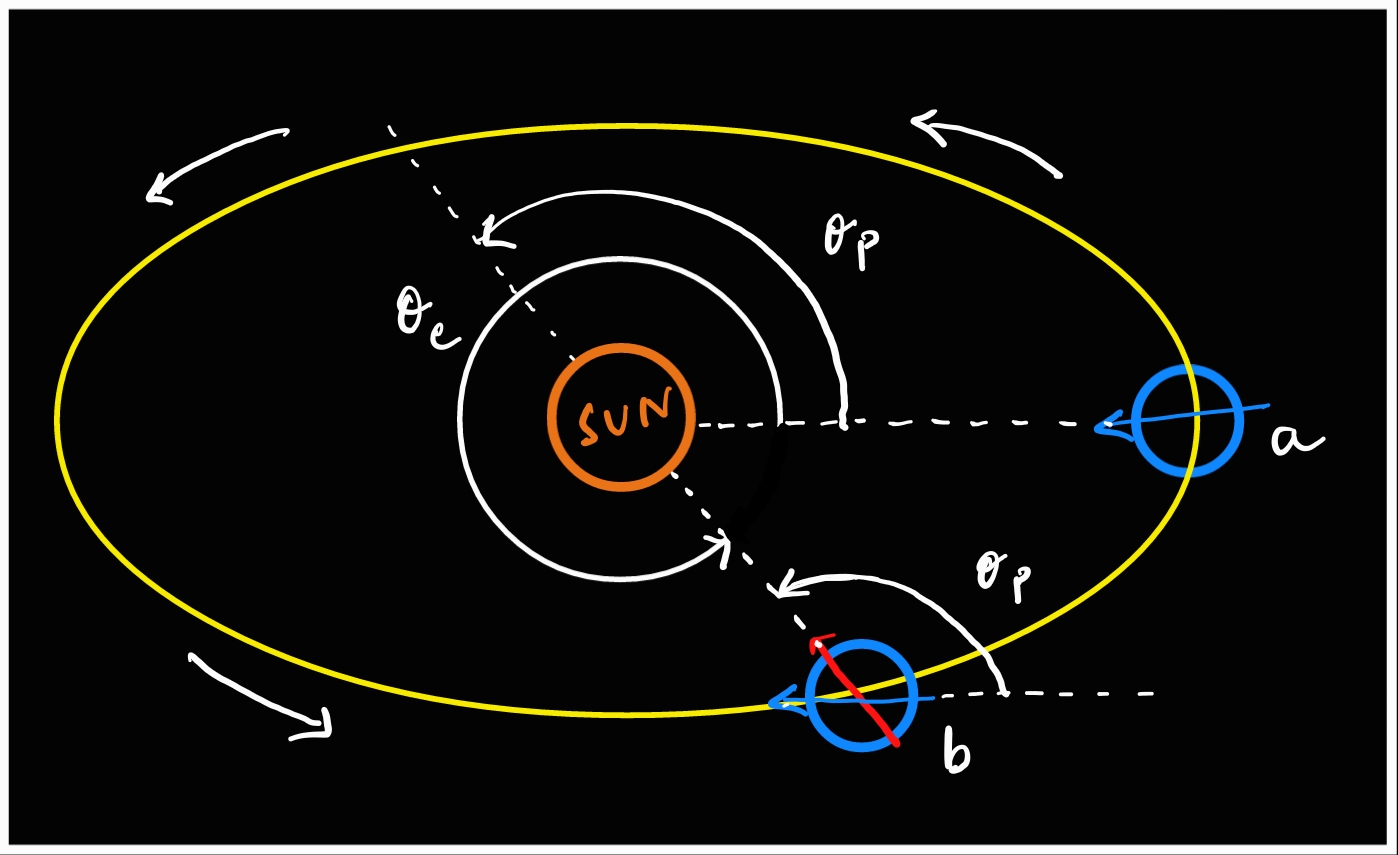 θp
θe
SUN
a
θp
b